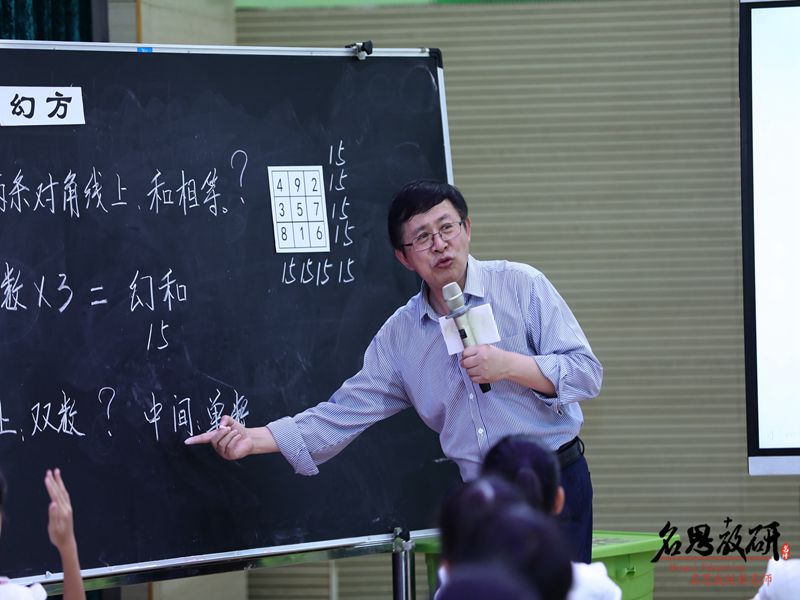 幻方
两条对角线上、和相等。?
4 9 2
3 5 7
8 1 6
15
15
15
15
15 15 15 15
数×3=幻和
15
上:双数? 中间:单数
名思教研